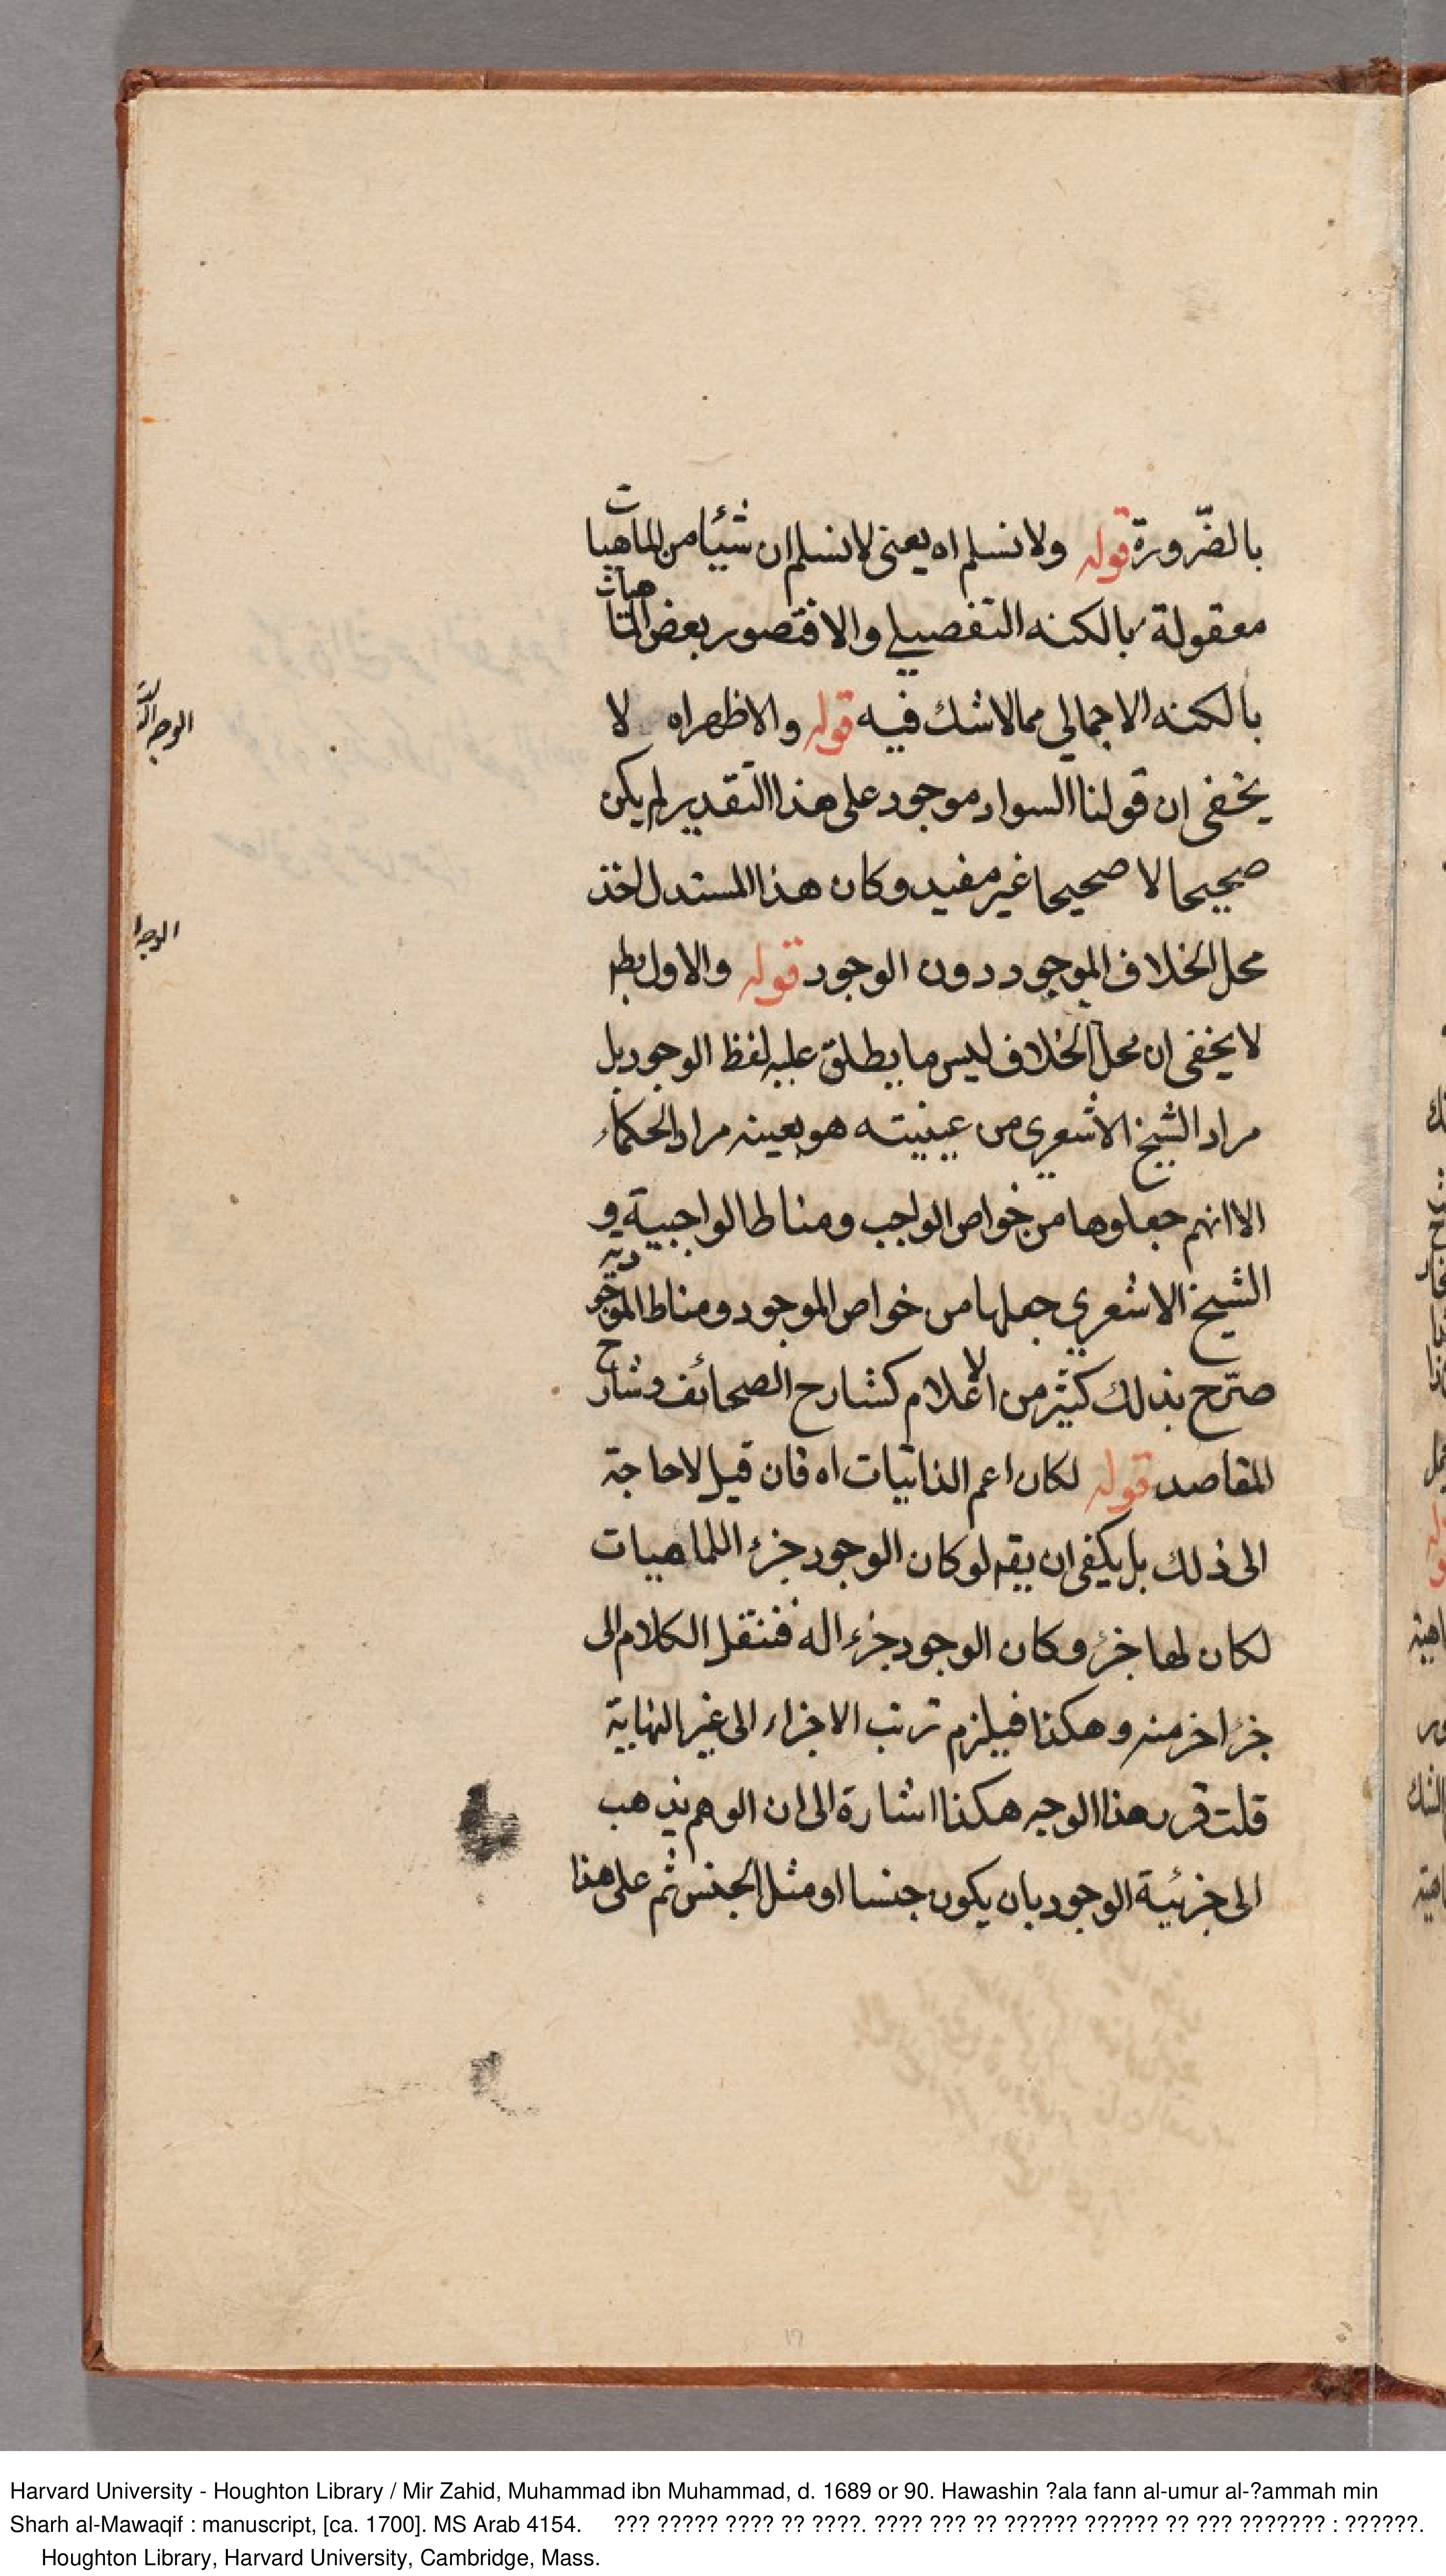 بالضّرورة قوله ولا نسلم اه يعنى لا نسلم ان شيئا من الماهيات
معقولة بالكنه التفصيلي والا فتصور بعض الماهيات
بالكنه الاجمالي مما لا شك فيه قوله والاظهر اه لا
يخفى ان قولنا السواد موجود على هذا التقدير لم يكن
صحيحا لا صحيحا غير مفيد وكان هذا المستدل اخذ
محل الخلاف الموجود دون الوجود قوله والاول بط
لا يخفى ان محل الخلاف ليس ما يطلق عليه لفظ الوجود بل
مراد الشيخ الاشعري من عينيته هو بعينه مراد الحكماء
الا انهم جعلوها من خواص الواجب ومناط الواجبية و
الشيخ الاشعري جعلها من خواص الموجود ومناط الموجودية
صرّح بذلك كثير من الاعلام كشارح الصحائف وشارح
المقاصد قوله لكان اعم الذاتيات اه فان قيل لا حاجة
الى ذلك بل يكفى ان يقم لو كان الوجود جزء اللماهيات
لكان لها جزء وكان الوجود جزء اله فننقل الكلام الى
جزء اخر منه وهكذا فيلزم ترتب الاجزاء الى غير النهاية
قلت قرر هذا الوجه هكذا اشارة الى ان الوهم يذهب
الى جزئية الوجود بان يكون جنسا او مثل الجنس ثم على هذا
الوجه
الوجه
17
Harvard University - Houghton Library / Mir Zahid, Muhammad ibn Muhammad, d. 1689 or 90. Hawashin ?ala fann al-umur al-?ammah min
Sharh al-Mawaqif : manuscript, [ca. 1700]. MS Arab 4154. ??? ????? ???? ?? ????. ???? ??? ?? ?????? ?????? ?? ??? ??????? : ??????.
Houghton Library, Harvard University, Cambridge, Mass.